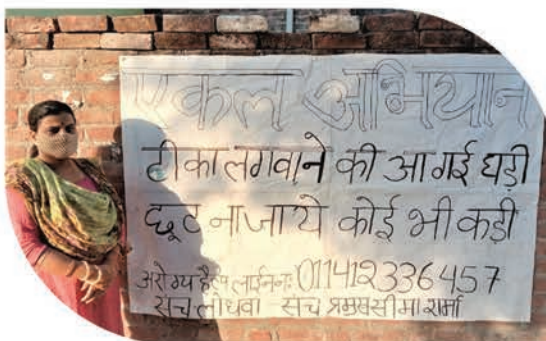 एकल अभियान
टीका लगवाने की आ गई घड़ी
छूट ना जाये कोई भी कड़ी
अरोग्य हैल्प लाईन नः 01141236457
संच लोधवा - संच प्रमुख सीमा शर्मा